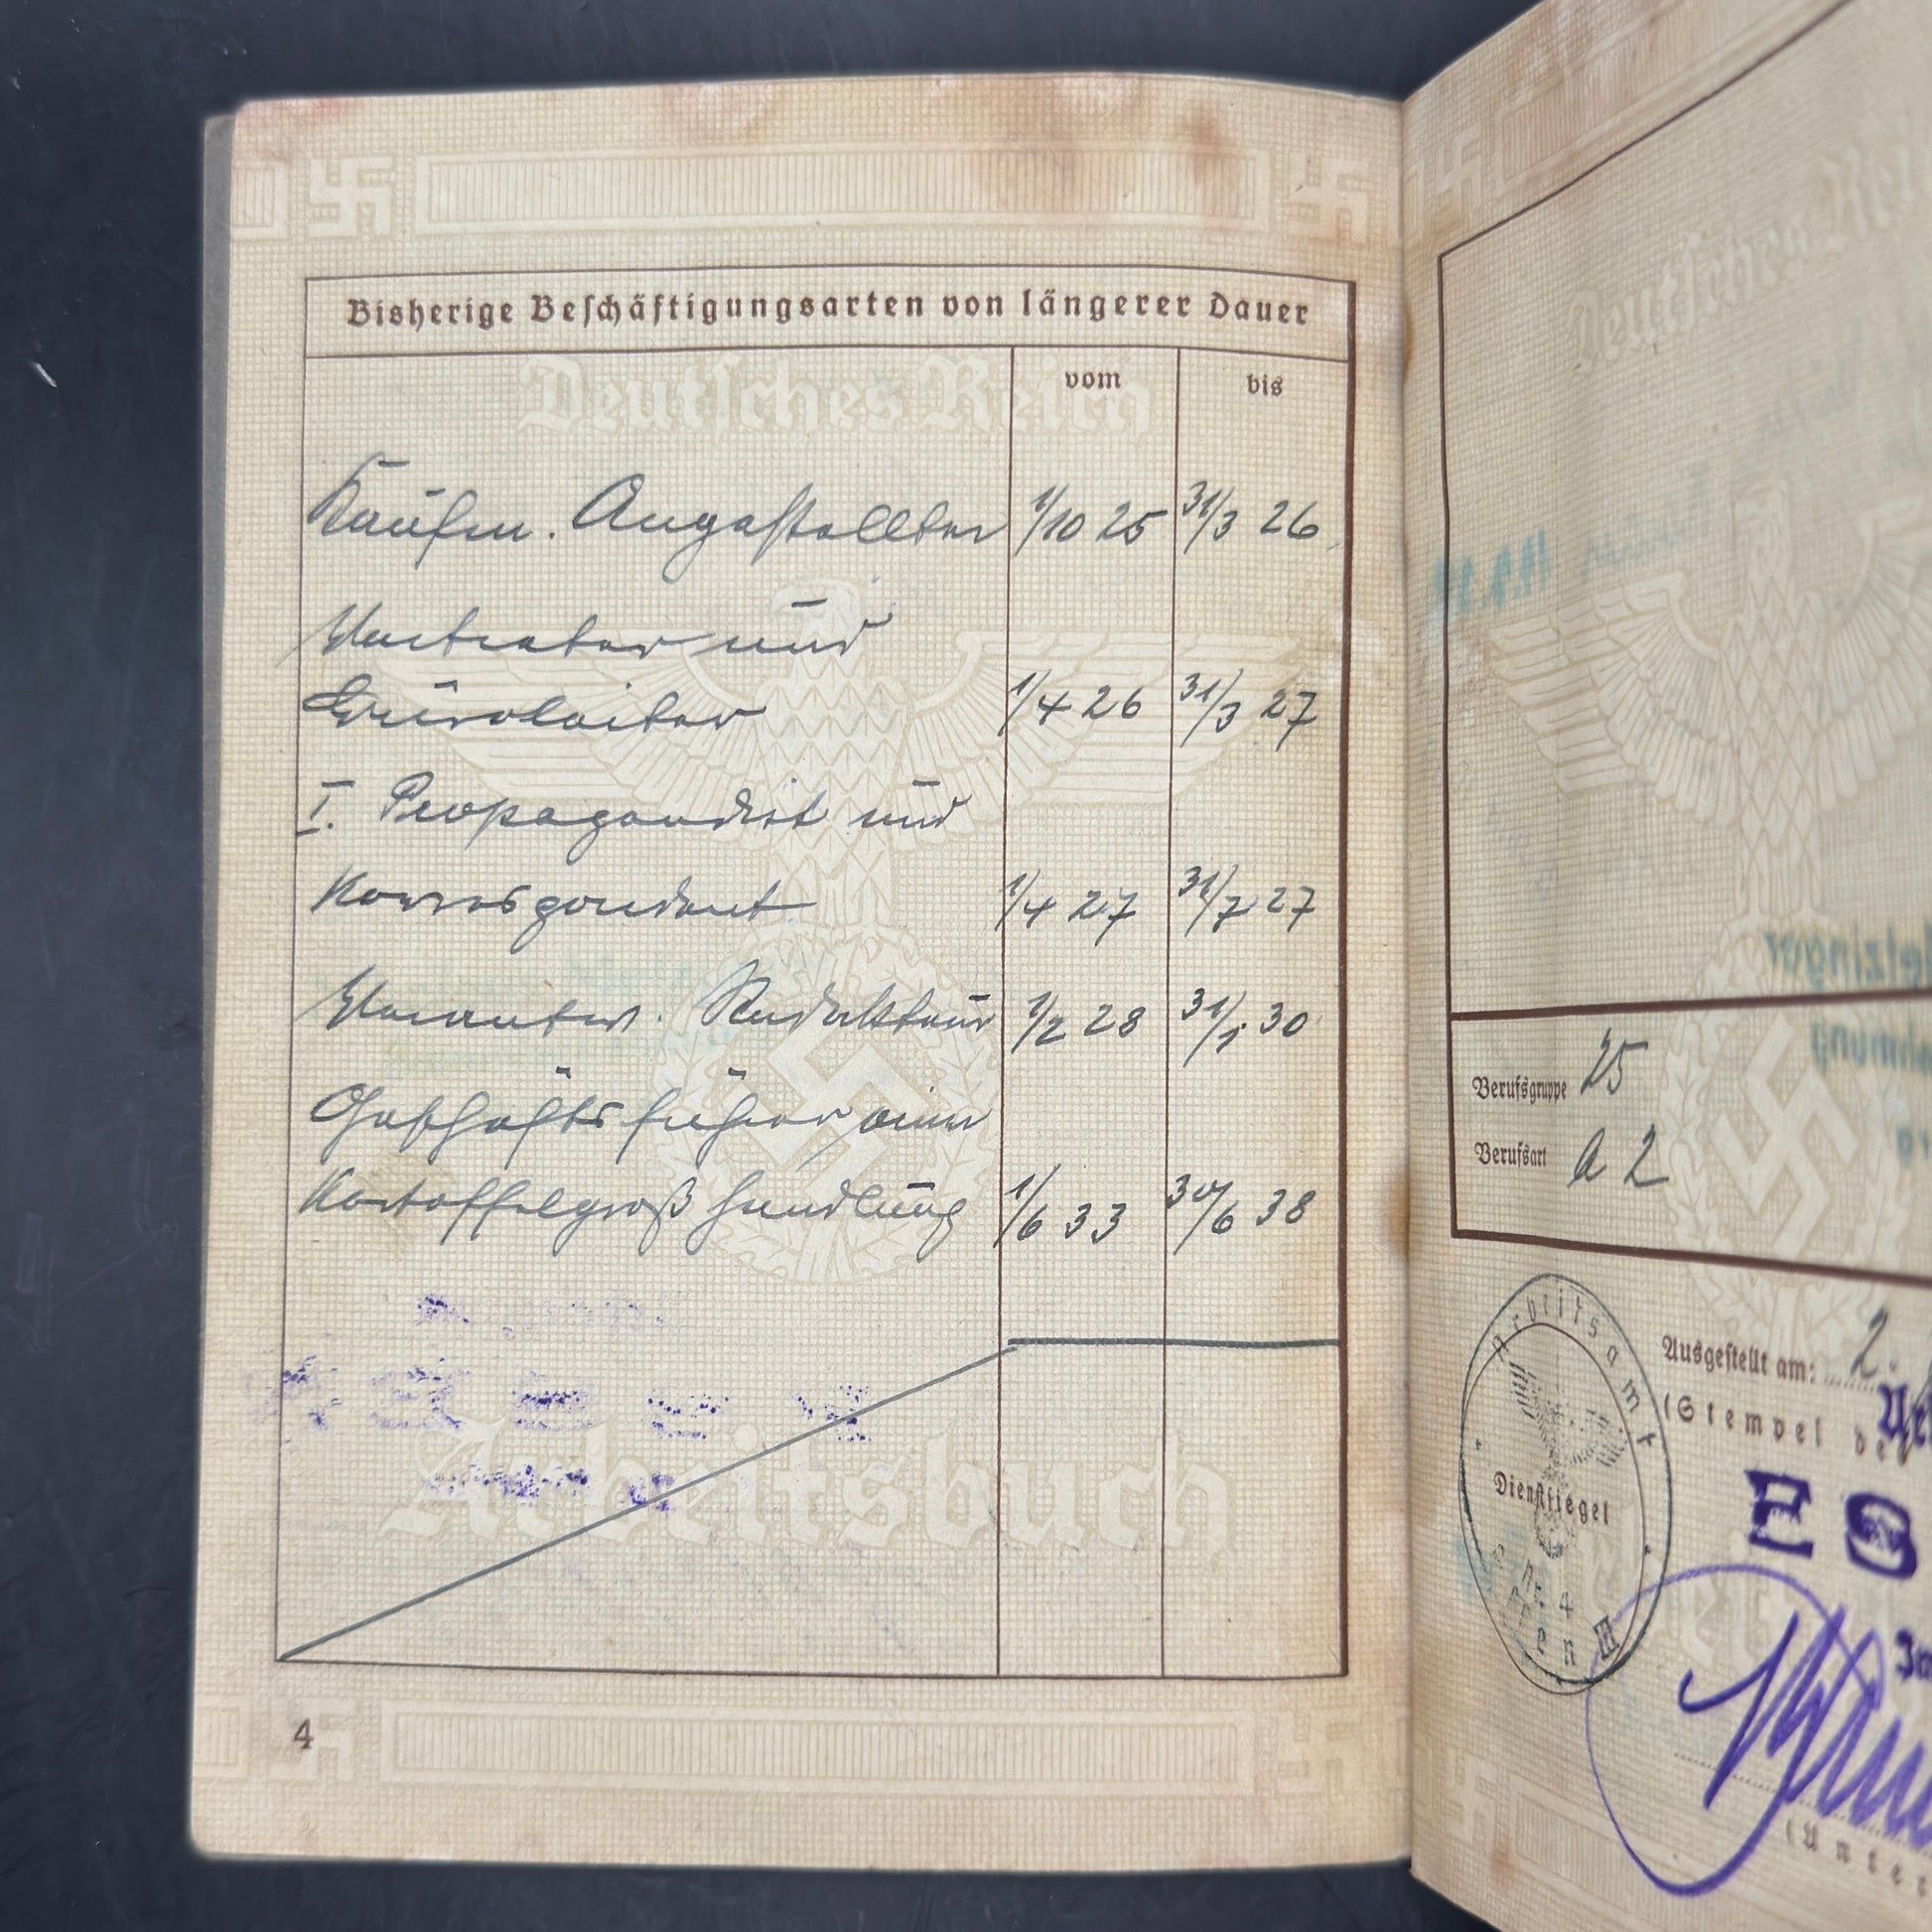 Bisherige Beschäftigungsarten von längerer Dauer
Deutsches Reich
vom
bis
Kaufm. Angestellter 1/10 25 31/3 26
Vertreter und
Büroleiter 1/4 26 31/3 27
I. Propagandist und
Korrespondent 1/4 27 31/7 27
Verantw. Redakteur 1/2 28 31/1 30
Geschäftsführer einer
Kartoffelgroßhandlung 1/6 33 30/6 38
Arbeitsbuch
4
Deutsches Rei
Berufsgruppe 25
Berufsart a 2
Arbeitsamt
Dienstsiegel
Nr. 4
Ausgestellt am: 2.
(Stempel de
ES